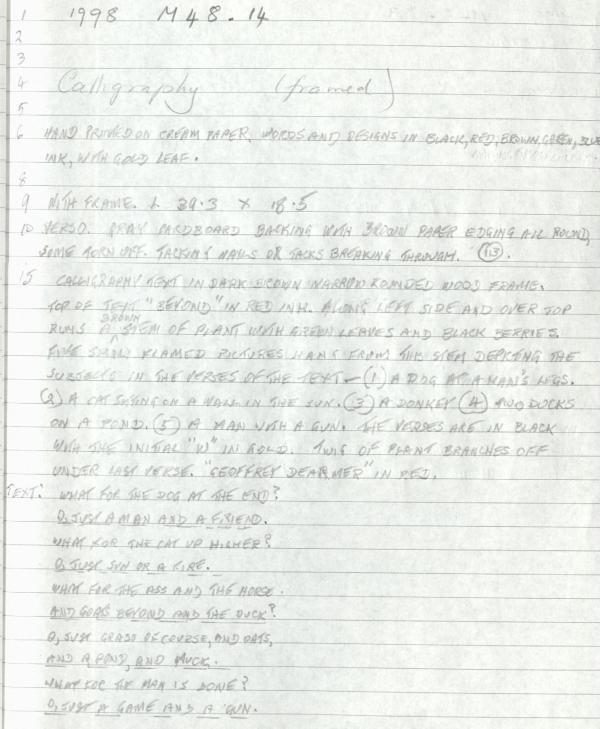 1 1998 M48.14
2
3
4 Calligraphy (framed)
5
6 HAND PRINTED ON CREAM PAPER, WORDS AND DESIGNS IN BLACK, RED, BROWN, GREEN, BLUE
INK, WITH GOLD LEAF.
8
9 WITH FRAME. L 39.3 X 18.5
10 VERSO. GRAY CARDBOARD BACKING WITH BROWN PAPER EDGING ALL ROUND,
SOME TORN OFF. TACKING NAILS OR TACKS BREAKING THROUGH. (13).
15 CALLIGRAPHY TEXT IN DARK BROWN NARROW ROUNDED WOOD FRAME.
TOP OF TEXT "BEYOND" IN RED INK. ALONG LEFT SIDE AND OVER TOP
RUNS A BROWN STEM OF PLANT WITH GREEN LEAVES AND BLACK BERRIES.
FIVE SMALL FRAMED PICTURES HANG FROM THE STEM DEPICTING THE
SUBJECTS IN THE VERSES OF THE TEXT - (1) A DOG AT A MAN'S LEGS.
(2) A CAT SITTING ON A WALL IN THE SUN. (3) A DONKEY (4) TWO DUCKS
ON A POND. (5) A MAN WITH A GUN. THE VERSES ARE IN BLACK
WITH THE INITIAL "W" IN GOLD. TWIG OF PLANT BRANCHES OFF
UNDER LAST VERSE. "GEOFFREY DEARMER" IN RED.
TEXT: WHAT FOR THE DOG AT THE END?
O, JUST A MAN AND A FRIEND.
WHAT FOR THE CAT UP HIGHER?
O, JUST SUN OR A FIRE.
WHAT FOR THE ASS AND THE HORSE.
AND GOATS BEYOND AND THE DUCK?
O, JUST GRASS OF COURSE, AND OATS,
AND A POND, AND MUCK.
WHAT FOR THE MAN IS DONE?
O, JUST A GAME AND A GUN.